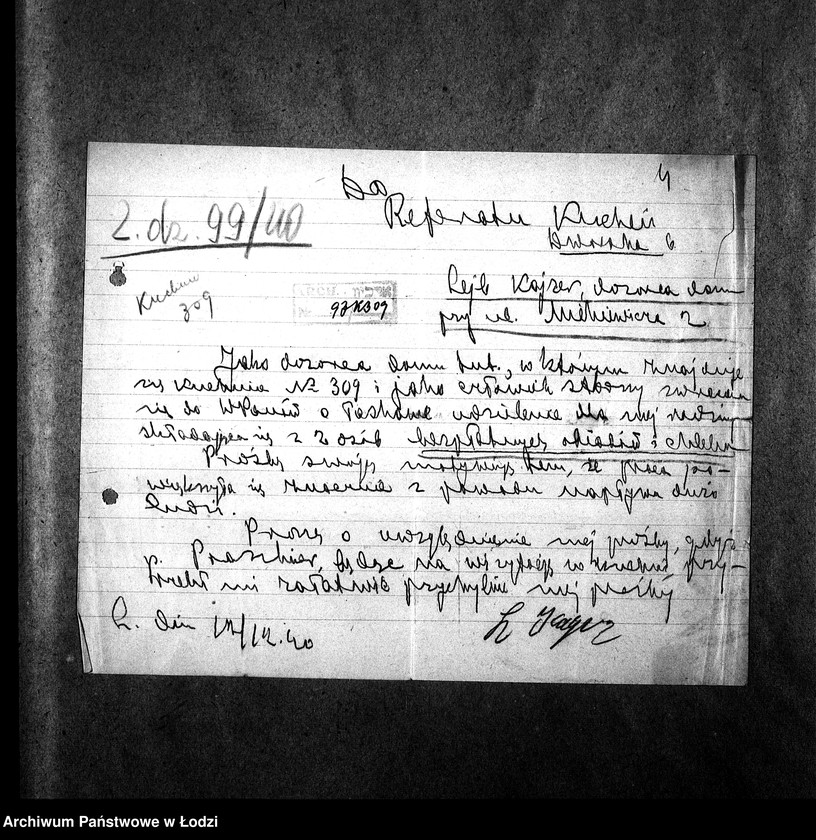 4
Do
Referatu Kuchen
Dworska 6
L. dz. 99/40
Kuchnia
309
97K309
Lejb Kajzer, dozorca domu
przy ul. Mickiewicza 2
Jako dozorca domu tut., w którym znajduje
się kuchnia № 309 i jako człowiek starszy zwracam
się do WPanów o łaskawe udzielenie dla mej rodziny
składającej się z 2 osób bezpłatnych obiadów i chleba
Prośbę swoją motywuję tem, że praca po-
większyła się znacznie z powodu napływu dużo
ludzi.
Proszę o uwzględnienie mej prośby, gdyż
P. Praszkier, będąc na w kuchni przy-
rzekł mi załatwić przychylnie mej prośby
Ł. dnia /12.40
L Kajzer
Archiwum Państwowe w Łodzi